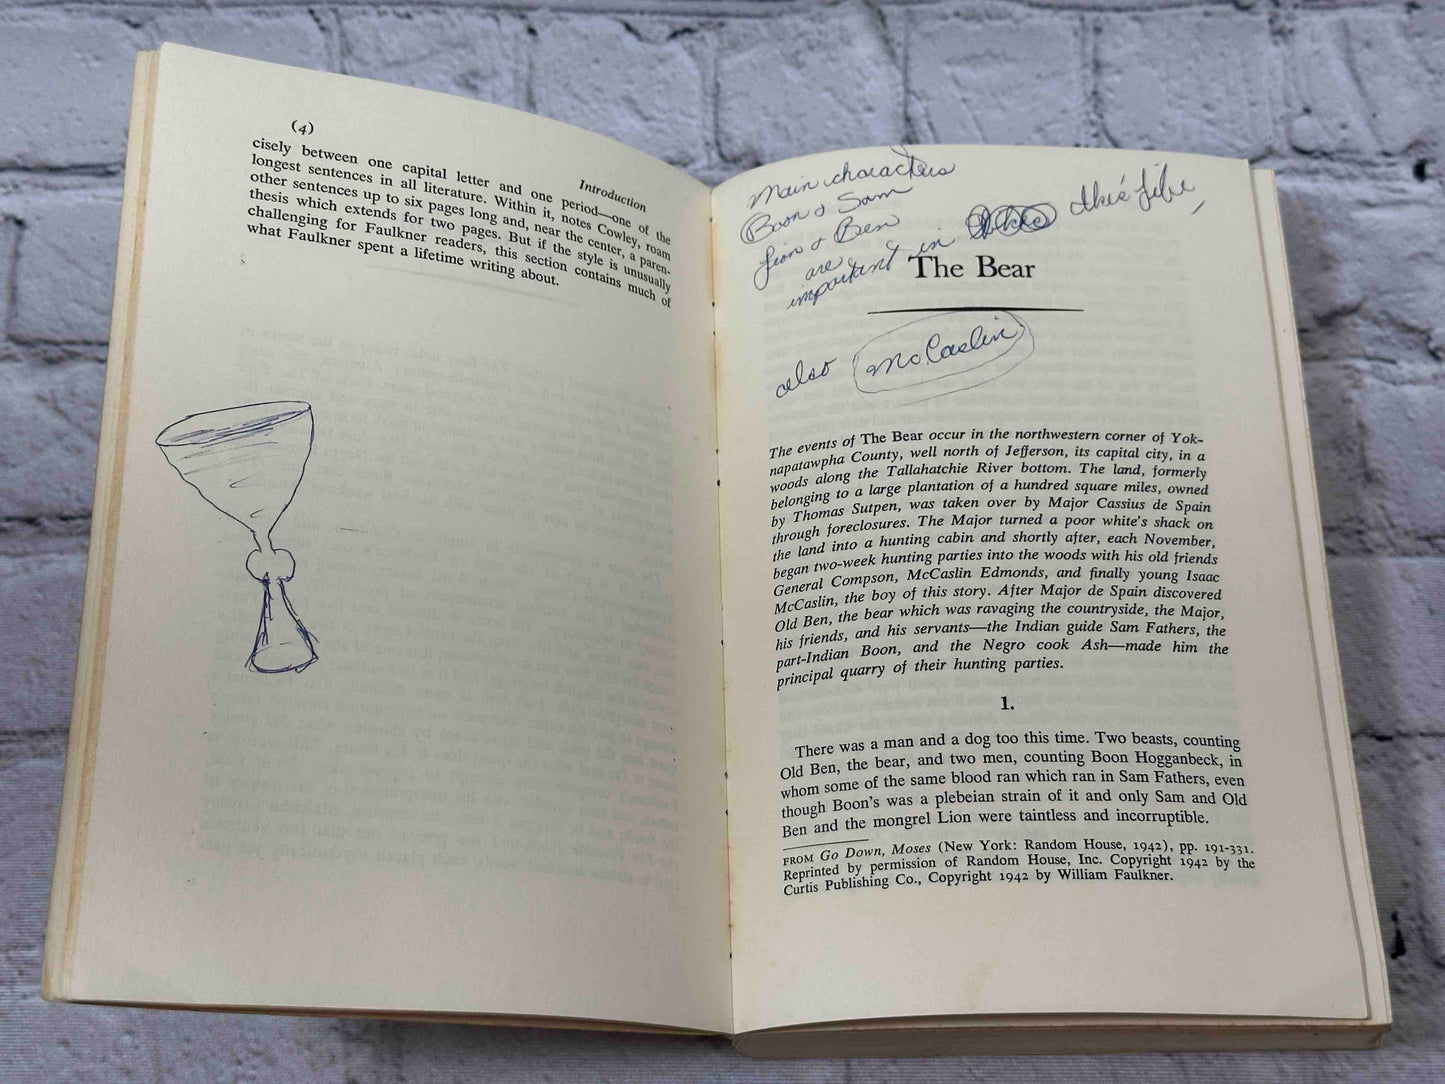 (4)
Introduction
cisely between one capital letter and one period—one of the
longest sentences in all literature. Within it, notes Cowley, roam
other sentences up to six pages long and, near the center, a paren-
thesis which extends for two pages. But if the style is unusually
challenging for Faulkner readers, this section contains much of
what Faulkner spent a lifetime writing about.
Main characters
Boon & Sam
Lion & Ben
are
important in this life
The Bear
also McCaslin
The events of The Bear occur in the northwestern corner of Yok-
napatawpha County, well north of Jefferson, its capital city, in a
woods along the Tallahatchie River bottom. The land, formerly
belonging to a large plantation of a hundred square miles, owned
by Thomas Sutpen, was taken over by Major Cassius de Spain
through foreclosures. The Major turned a poor white's shack on
the land into a hunting cabin and shortly after, each November,
began two-week hunting parties into the woods with his old friends
General Compson, McCaslin Edmonds, and finally young Isaac
McCaslin, the boy of this story. After Major de Spain discovered
Old Ben, the bear which was ravaging the countryside, the Major,
his friends, and his servants—the Indian guide Sam Fathers, the
part-Indian Boon, and the Negro cook Ash—made him the
principal quarry of their hunting parties.
1.
There was a man and a dog too this time. Two beasts, counting
Old Ben, the bear, and two men, counting Boon Hogganbeck, in
whom some of the same blood ran which ran in Sam Fathers, even
though Boon's was a plebeian strain of it and only Sam and Old
Ben and the mongrel Lion were taintless and incorruptible.
FROM Go Down, Moses (New York: Random House, 1942), pp. 191-331.
Reprinted by permission of Random House, Inc. Copyright 1942 by the
Curtis Publishing Co., Copyright 1942 by William Faulkner.